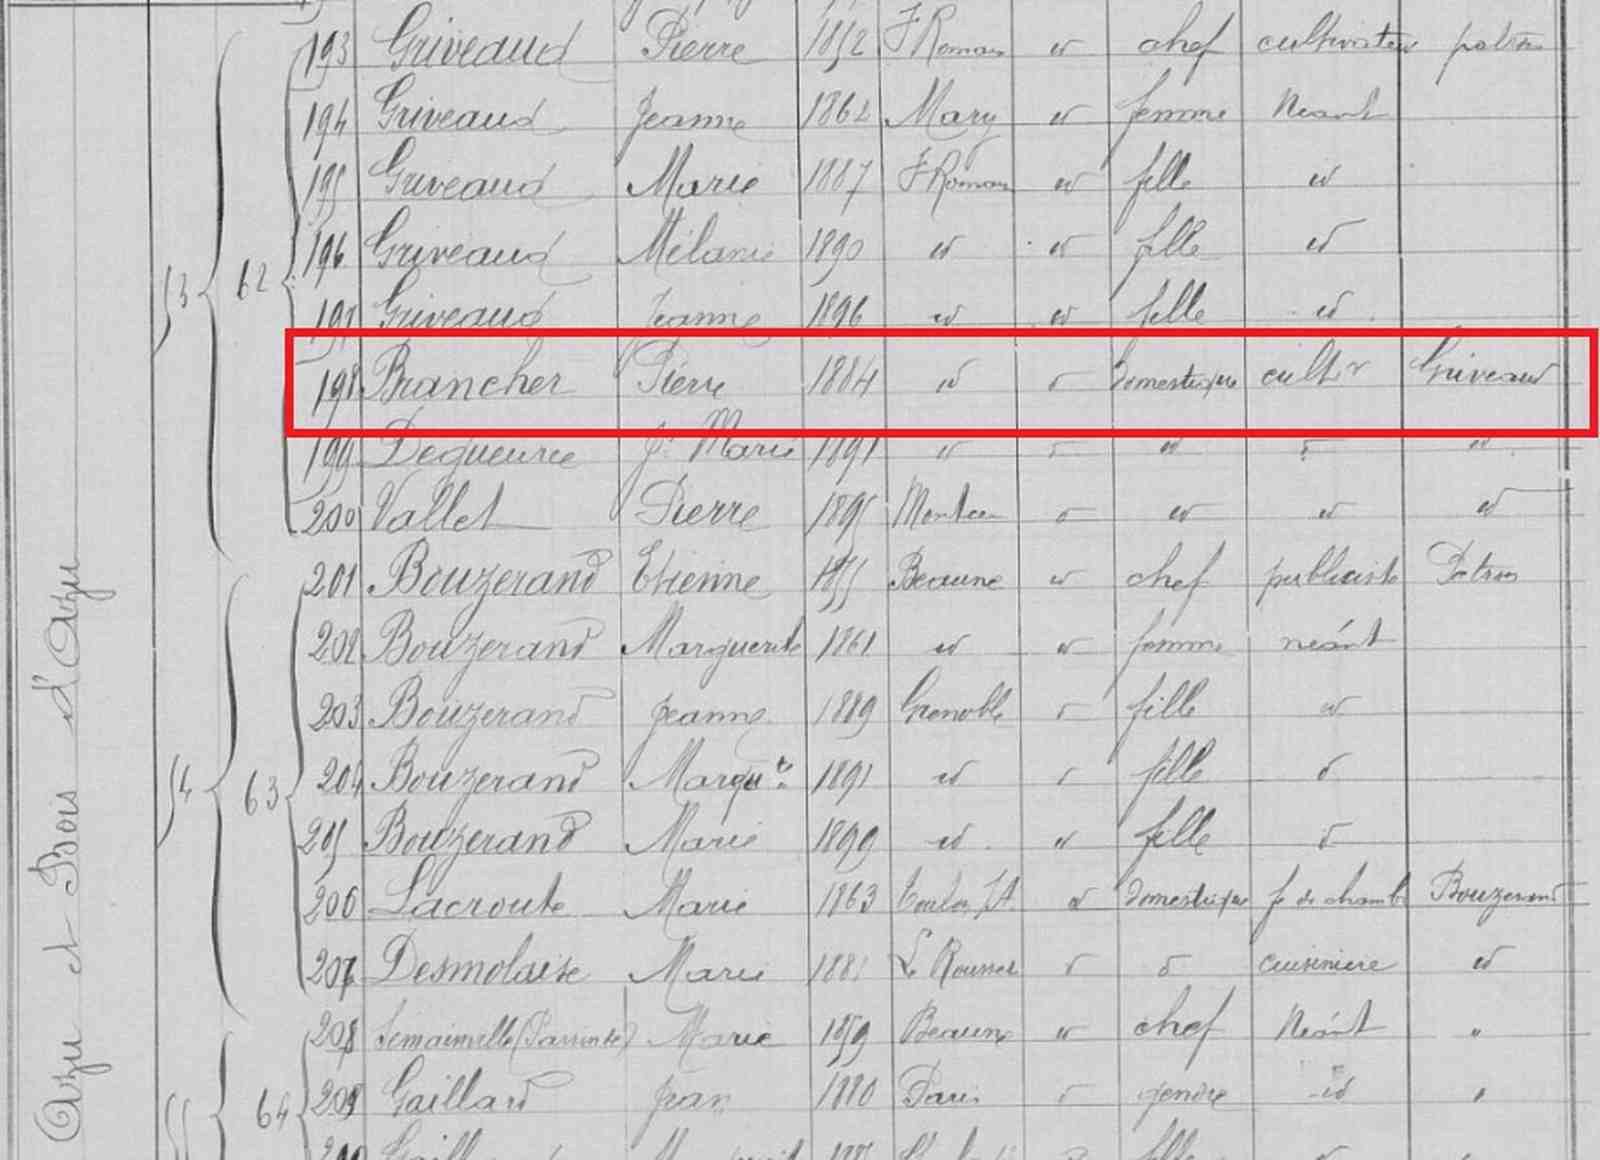 193 Griveaud Pierre 1852 St Romain id chef cultivateur patron
194 Griveaud Jeanne 1862 Mary id femme Néant
195 Griveaud Marie 1887 St Romain id fille id
53 62 196 Griveaud Mélanie 1890 id id fille id
197 Griveaud Jeanne 1896 id id fille id
198 Brancher Pierre 1884 id d domestique cultr Griveaud
199 Degueurce J. Marie 1891 id d id d id
200 Vallet Pierre 1895 d id id id
201 Bouzerand Etienne 1855 Beaune id chef publiciste Patron
202 Bouzerand Marguerite 1861 id id femme néant
203 Bouzerand Jeanne 1889 Grenoble d fille id
54 63 204 Bouzerand Margte 1891 id d fille d
205 Bouzerand Marie 1899 id id fille d
206 Lacroute Marie 1863 id domestique f de chamb Bouzerand
207 Desmolaise Marie 1881 Le Rousset d d cuisinière id
208 Marie 1859 Beaune id chef Néant "
64 209 Gaillard Jean 1880 Paris d gendre id "
Ozu et Bois d'Ozu